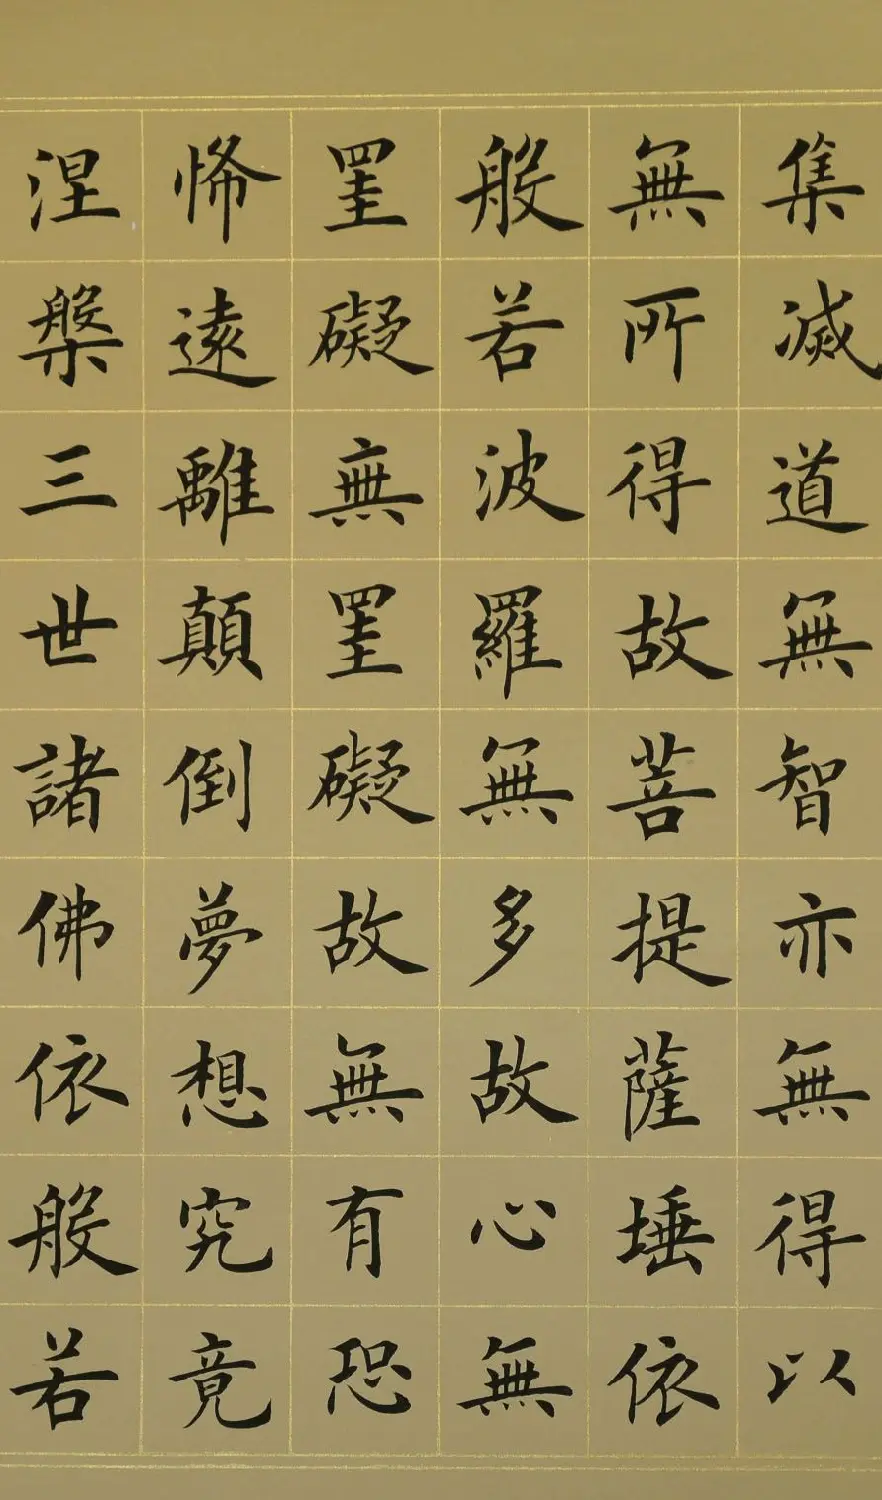 集滅道無智亦無得以
無所得故菩提薩埵依
般若波羅無多故心無
罣礙無罣礙故無有恐
悕遠離顛倒夢想究竟
涅槃三世諸佛依般若